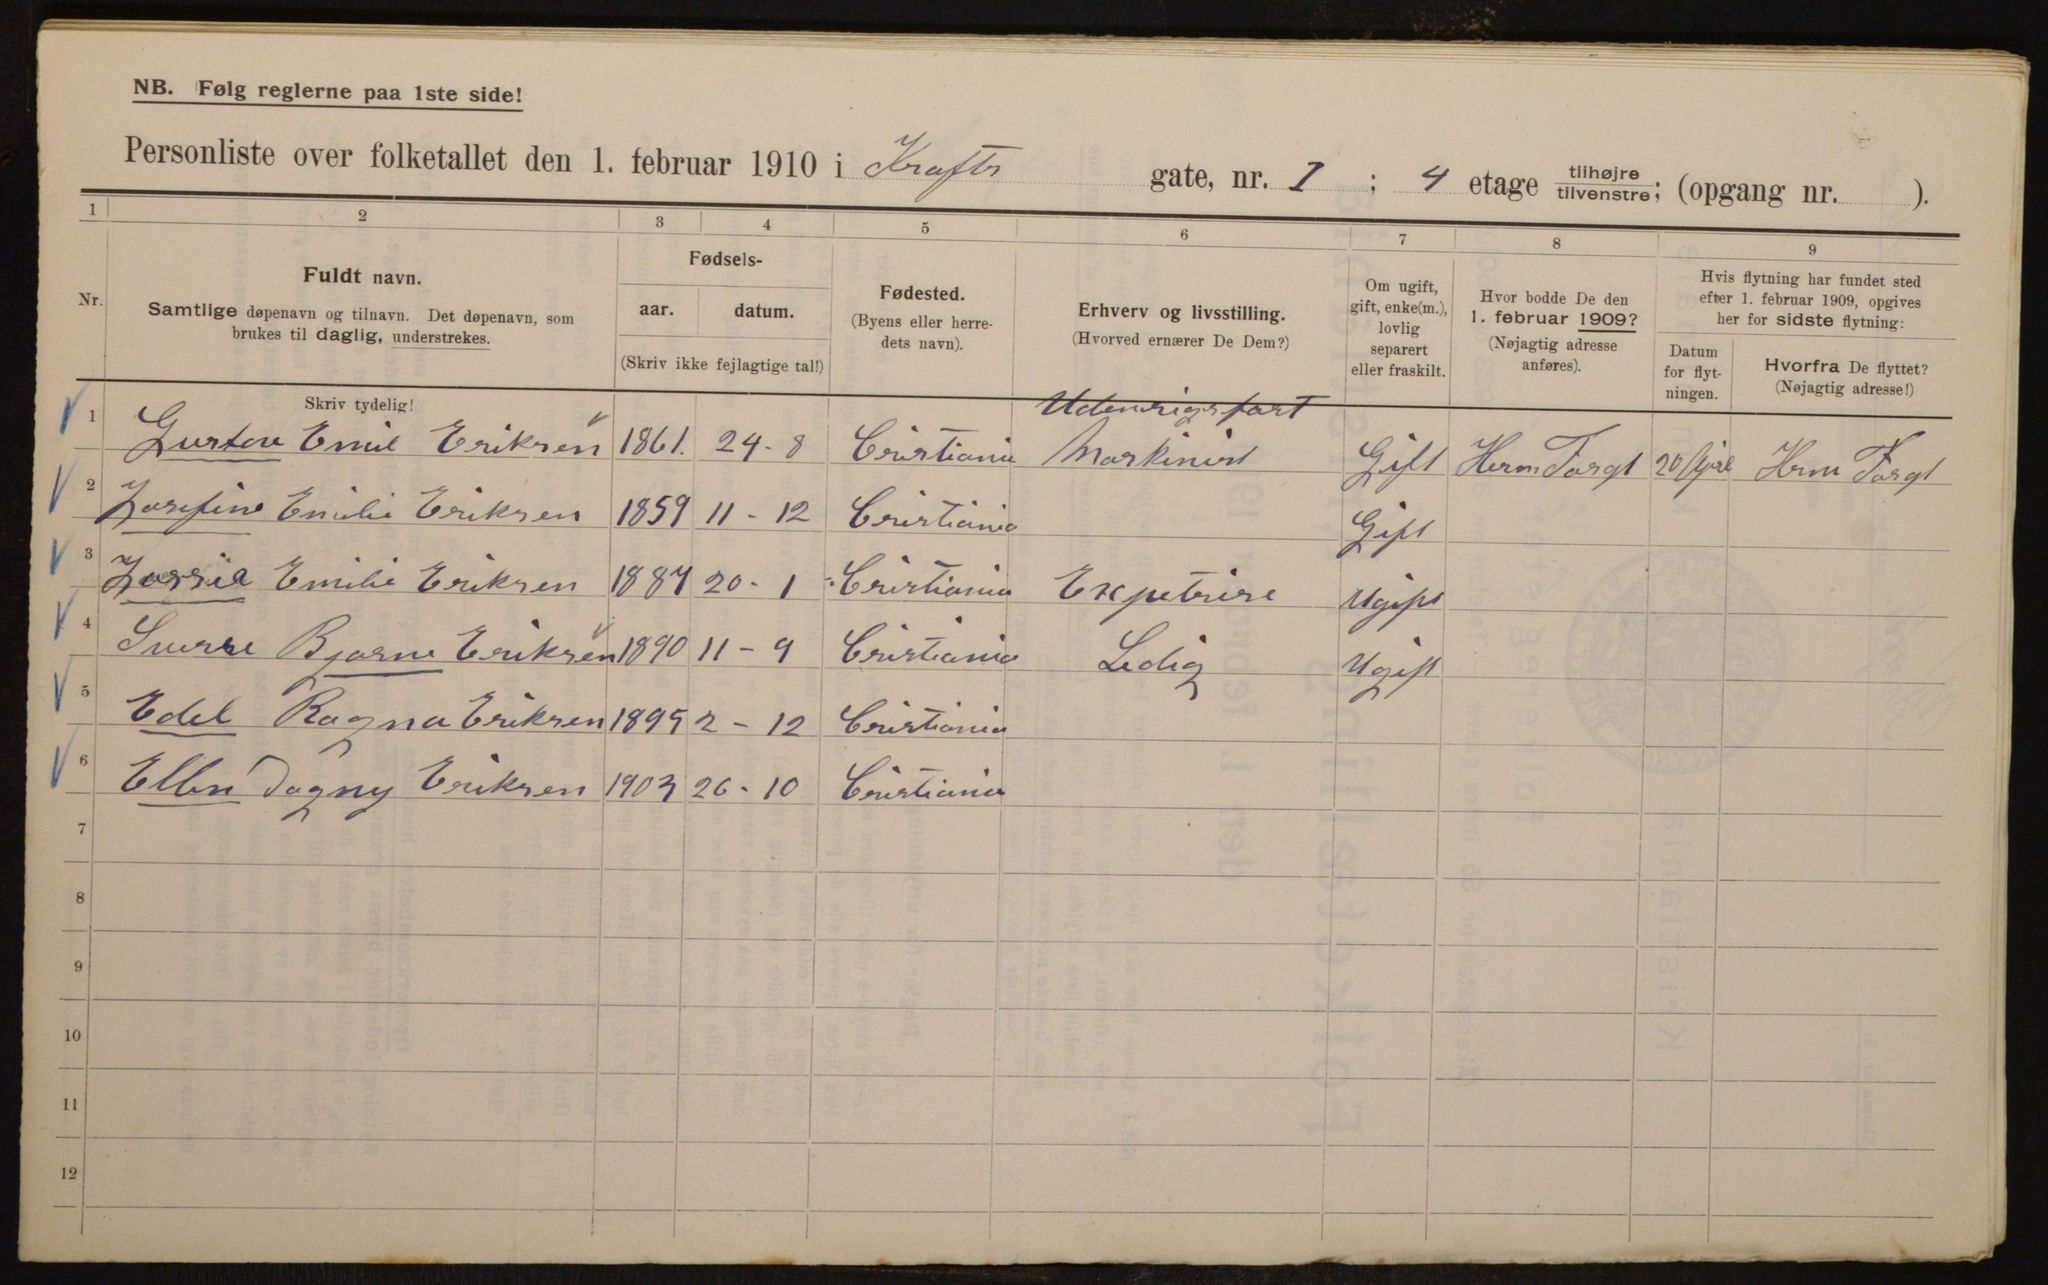 NB. Følg reglerne paa 1ste side!
Personliste over folketallet den 1. februar 1910 i Krafts gate, nr. 1 ; 4 etage tilhøjre/tilvenstre; (opgang nr. ).
1 2 3 4 5 6 7 8 9
Nr.
Fuldt navn.
Samtlige døpenavn og tilnavn. Det døpenavn, som
brukes til daglig, understrekes.
Skriv tydelig!
Fødsels-
aar. datum.
(Skriv ikke fejlagtige tal!)
Fødested.
(Byens eller herre-
dets navn).
Erhverv og livsstilling.
(Hvorved ernærer De Dem?)
Om ugift,
gift, enke(m.),
lovlig
separert
eller fraskilt.
Hvor bodde De den
1. februar 1909?
(Nøjagtig adresse
anføres).
Hvis flytning har fundet sted
efter 1. februar 1909, opgives
her for sidste flytning:
Datum
for flyt-
ningen.
Hvorfra De flyttet?
(Nøjagtig adresse!)
Udenrigsfart
1 Gustav Emil Eriksen 1861. 24-8 Cristiania Maskinist Gift Herm Forgt 20 April Hrm Forgt
2 Josefine Emilie Eriksen 1859 11-12 Cristiania Gift
3 Emilie Eriksen 1887 20-1 Cristiania Expetrise Ugift
4 Sverre Bjarne Eriksen 1890 11-9 Cristiania Ledig Ugift
5 Edel Ragna Eriksen 1895 2-12 Cristiania
6 Ellen Dagny Eriksen 1903 26-10 Cristiania
7
8
9
10
11
12